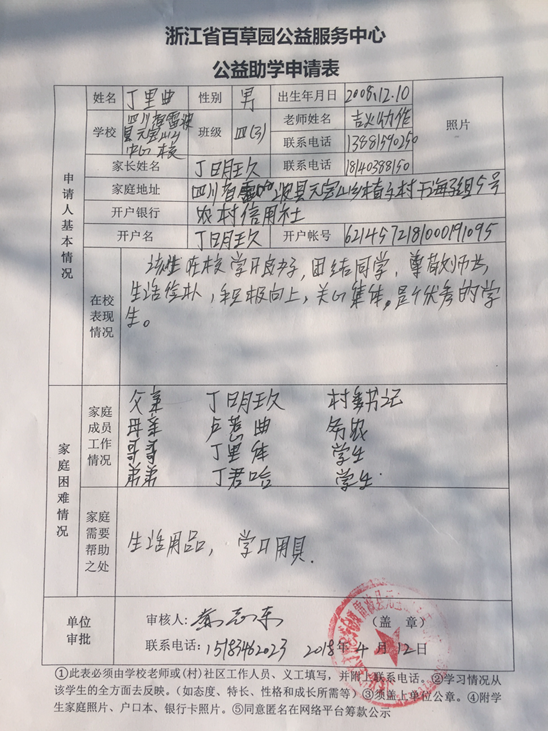 浙江省百草园公益服务中心
公益助学申请表
申请人基本情况
姓名 丁里曲 性别 男 出生年月日 2008.12.10
学校 四川省雷波县元宝山乡中心校 班级 四(3) 老师姓名 吉火幼作 照片
联系电话 13881590250
家长姓名 丁明玖 联系电话 18140388150
家庭地址 四川省雷波县元宝山乡 村 组5号
开户银行 农村信用社
开户名 丁明玖 开户帐号 6214572181000191095
在校表现情况
该生在校学习良好,团结同学,尊敬师长,
生活俭朴,积极向上,关心集体,是个优秀的学
生。
家庭困难情况
家庭成员工作情况
父亲 丁明玖 村委书记
母亲 卢 曲 务农
哥哥 丁里 学生
弟弟 丁君哈 学生
家庭需要帮助之处
生活用品,学习用具.
单位审批
审核人: (盖 章)
联系电话: 15183462023 2018年4月12日
①此表必须由学校老师或(村)社区工作人员、义工填写,并附上联系电话。②学习情况从
该学生的全方面去反映。(如态度、特长、性格和成长所需等)③须盖上单位公章。④附学
生家庭照片、户口本、银行卡照片。⑤同意匿名在网络平台筹款公示